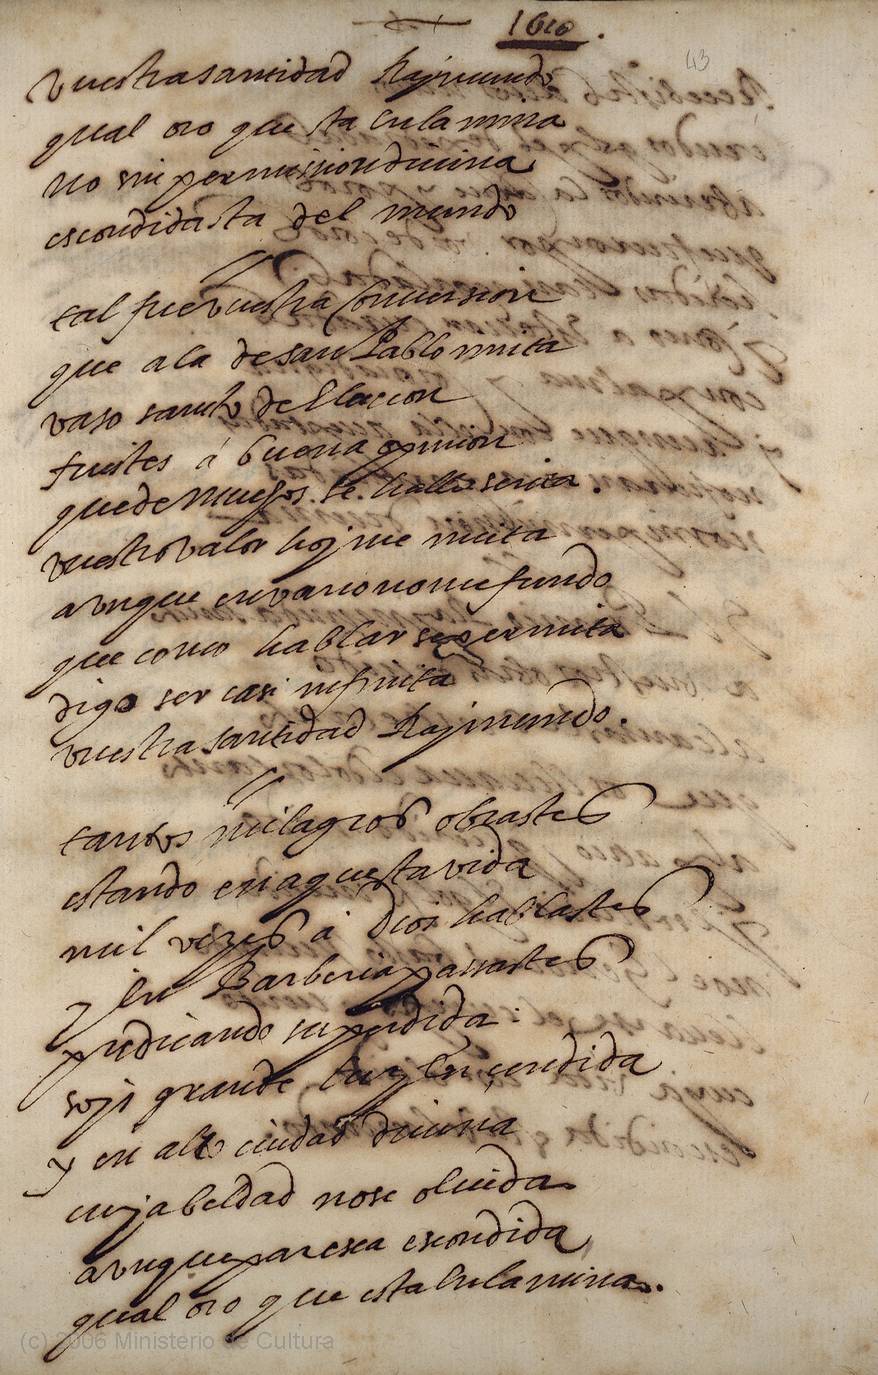 1610.
43
vuestra santidad Rajmundo
qual oro que sta en la mina
no sin permission divina
escondida sta del mundo
tal fue vuestra Conversion
que a la de san Pablo imita
vaso santo de Elecion
fuistes á buena opinion
que de muchos se halla scrita.
vuestro valor hoj me incita
aunque en vano no me fundo
que como hablar se permita
digo ser casi infinita
vuestra santidad Rajmundo.
tantos milagros obrastes
estando en aquesta vida
mil vezes á Dios hablastes
y En Barberia passastes
predicando su perdida
sojs grande luz Encendida
y en alto ciudad divina
cuja beldad no se olvida
aunque paresca escondida
qual oro que esta En la mina.
(c) 2006 Ministerio de Cultura